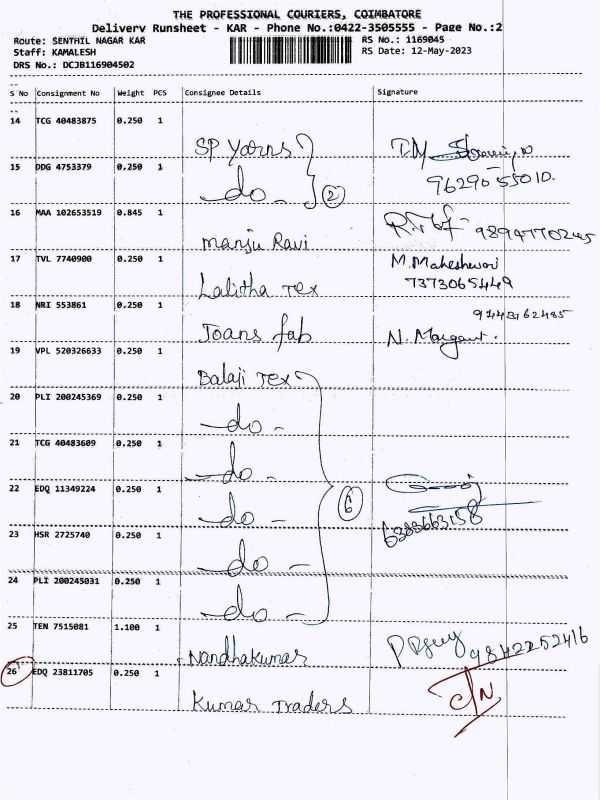 THE PROFESSIONAL COURIERS, COIMBATORE
Delivery Runsheet - KAR - Phone No.:0422-3505555 - Page No.:2
Route: SENTHIL NAGAR KAR
RS No.: 1169045
Staff: KAMALESH
RS Date: 12-May-2023
DRS No.: DCJB116904502
S No Consignment No Weight PCS Consignee Details Signature
14 TCG 40483875 0.250 1
SP Yarns
T.M
15 DDG 4753379 0.250 1
do - 2
96290 55010.
16 MAA 102653519 0.845 1
Manju Ravi
9894770245
17 TVL 7740900 0.250 1
M.Maheshwari
Lalitha Tex
7373065449
18 NRI 553861 0.250 1
9443762485
Joans fab
19 VPL 520326633 0.250 1
Balaji Tex
20 PLI 200245369 0.250 1
do -
21 TCG 40483609 0.250 1
do -
22 EDQ 11349224 0.250 1
do - 6
23 HSR 2725740 0.250 1
6303663158
do -
24 PLI 200245031 0.250 1
do -
25 TEN 7515081 1.100 1
Nandhakumar
9842252416
26 EDQ 23811705 0.250 1
Kumar Traders